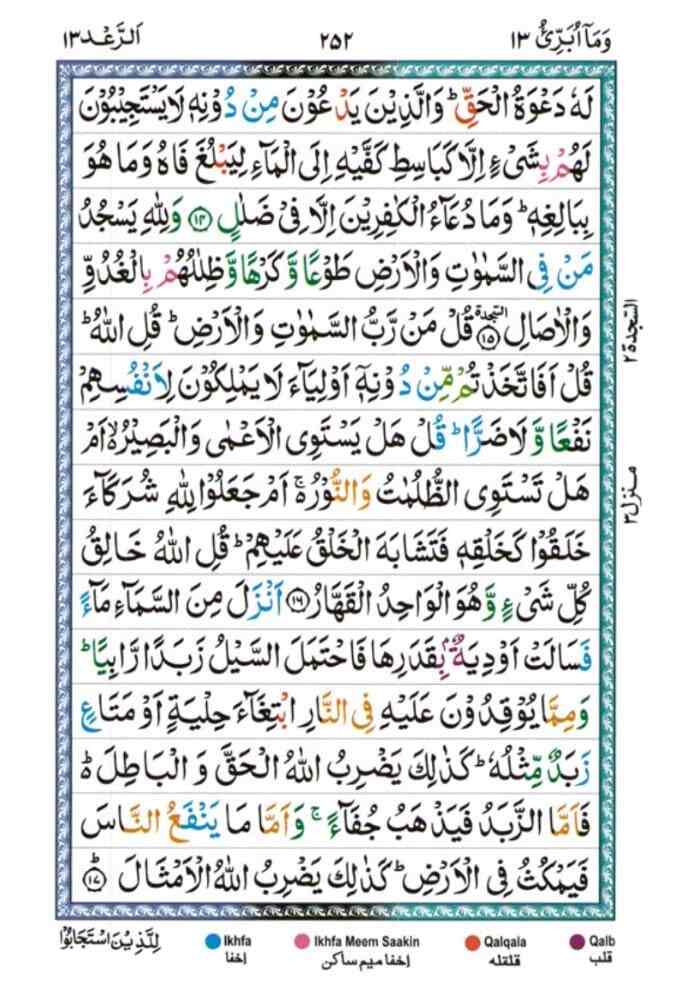 وَمَاۤ اُبَرِّئُ ١٣
٢٥٢
اَلرَّعْد ١٣
لَهٗ دَعْوَةُ الْحَقِّ ؕ وَالَّذِيْنَ يَدْعُوْنَ مِنْ دُوْنِهٖ لَا يَسْتَجِيْبُوْنَ
لَهُمْ بِشَىْءٍ اِلَّا كَبَاسِطِ كَفَّيْهِ اِلَى الْمَآءِ لِيَبْلُغَ فَاهُ وَمَا هُوَ
بِبَالِغِهٖ ؕ وَمَا دُعَآءُ الْكٰفِرِيْنَ اِلَّا فِىْ ضَلٰلٍ ۝١٤ وَلِلّٰهِ يَسْجُدُ
مَنْ فِى السَّمٰوٰتِ وَالْاَرْضِ طَوْعًا وَّكَرْهًا وَّظِلٰلُهُمْ بِالْغُدُوِّ
وَالْاٰصَالِ ۝١٥ السجدة قُلْ مَنْ رَّبُّ السَّمٰوٰتِ وَالْاَرْضِ ؕ قُلِ اللّٰهُ ؕ
قُلْ اَفَاتَّخَذْتُمْ مِّنْ دُوْنِهٖۤ اَوْلِيَآءَ لَا يَمْلِكُوْنَ لِاَنْفُسِهِمْ
نَفْعًا وَّلَا ضَرًّا ؕ قُلْ هَلْ يَسْتَوِى الْاَعْمٰى وَالْبَصِيْرُ ۙ اَمْ
هَلْ تَسْتَوِى الظُّلُمٰتُ وَالنُّوْرُ ۚ اَمْ جَعَلُوْا لِلّٰهِ شُرَكَآءَ
خَلَقُوْا كَخَلْقِهٖ فَتَشَابَهَ الْخَلْقُ عَلَيْهِمْ ؕ قُلِ اللّٰهُ خَالِقُ
كُلِّ شَىْءٍ وَّهُوَ الْوَاحِدُ الْقَهَّارُ ۝١٦ اَنْزَلَ مِنَ السَّمَآءِ مَآءً
فَسَالَتْ اَوْدِيَةٌۢ بِقَدَرِهَا فَاحْتَمَلَ السَّيْلُ زَبَدًا رَّابِيًا ؕ
وَمِمَّا يُوْقِدُوْنَ عَلَيْهِ فِى النَّارِ ابْتِغَآءَ حِلْيَةٍ اَوْ مَتَاعٍ
زَبَدٌ مِّثْلُهٗ ؕ كَذٰلِكَ يَضْرِبُ اللّٰهُ الْحَقَّ وَ الْبَاطِلَ ؕ۬
فَاَمَّا الزَّبَدُ فَيَذْهَبُ جُفَآءً ۚ وَاَمَّا مَا يَنْفَعُ النَّاسَ
فَيَمْكُثُ فِى الْاَرْضِ ؕ كَذٰلِكَ يَضْرِبُ اللّٰهُ الْاَمْثَالَ ؕ ۝١٧
السجدة ٢
منزل ٣
لِلَّذِيْنَ اسْتَجَابُوْا
Ikhfa
اخفا
Ikhfa Meem Saakin
اخفا میم ساکن
Qalqala
قلقله
Qalb
قلب